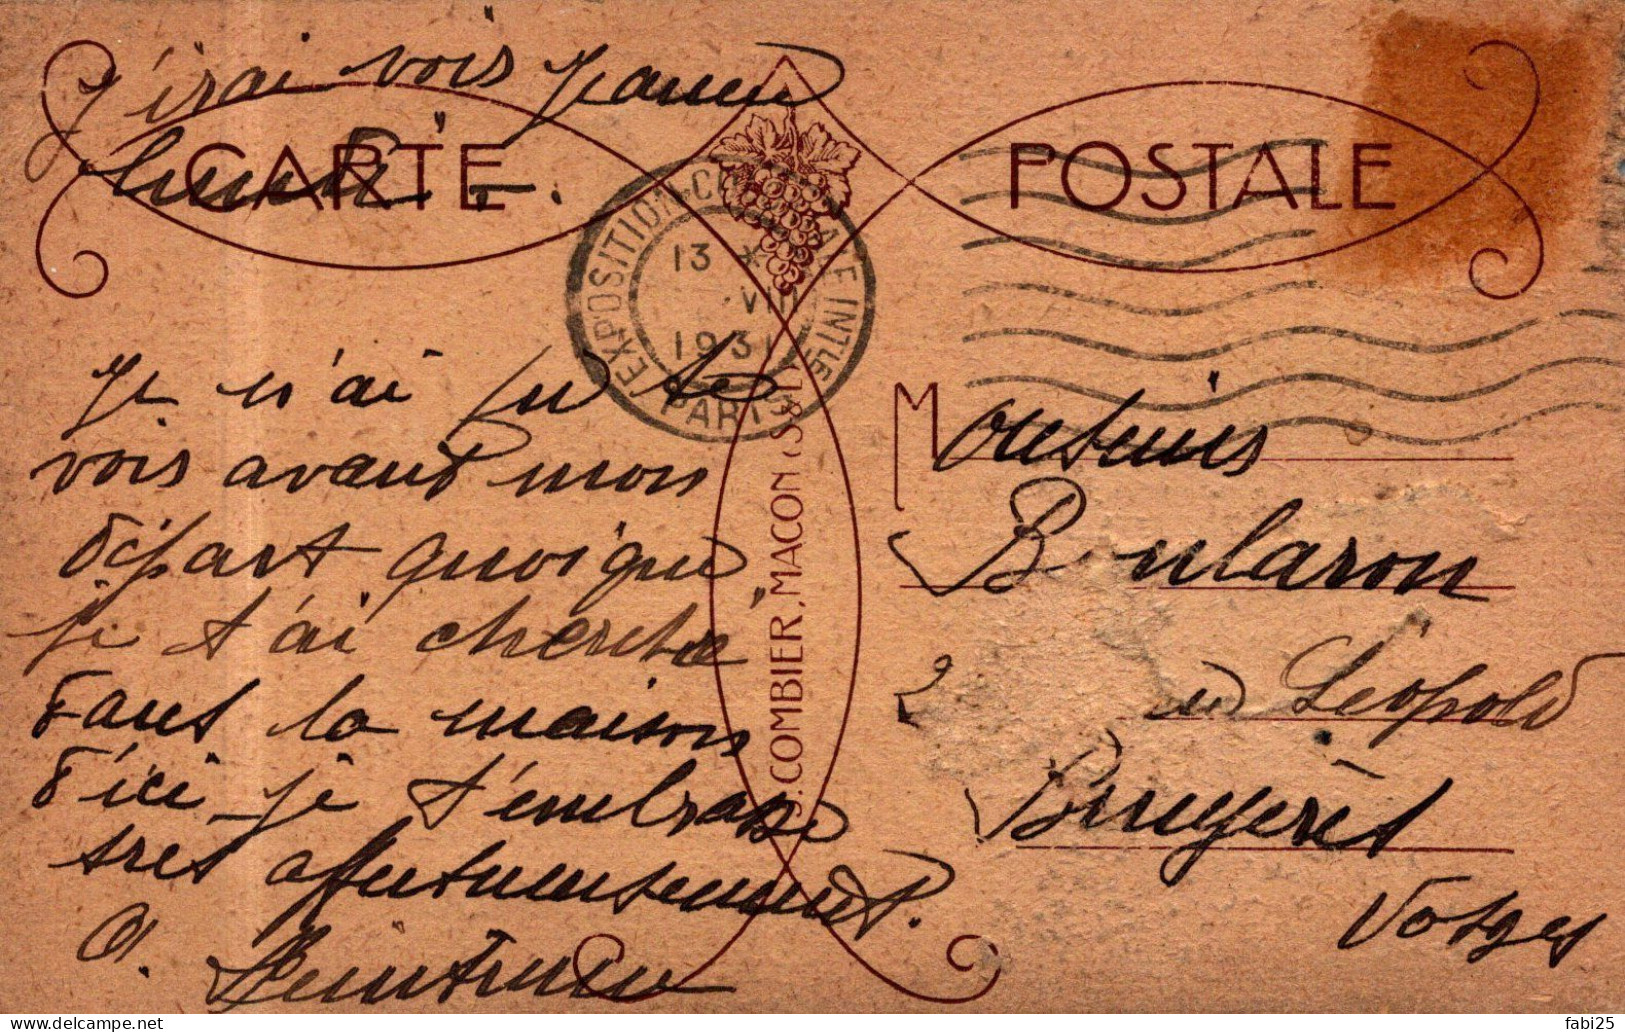 J'irai vois Jeanne
lundi.
CARTE POSTALE
EXPOSITION COLONIALE INTLE
13 X
VIII
1931
PARIS
Je n'ai pu te
vois avant mon
départ quoique
je t'ai cherché
dans la maison
d'ici je t'embrasse
très affectueusement.
A.
S. COMBIER, MACON (S&L)
Monsieur
Boularon
2 Léopold
Bruyères
Vosges
fabi25